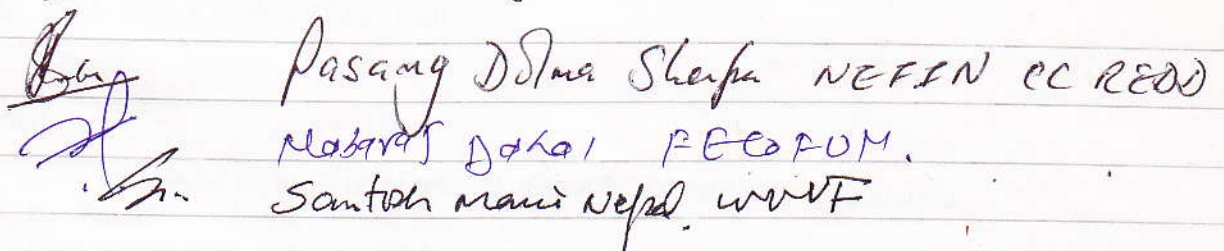 Pasang Dolma Sherpa NEFIN CC REDD
Nabaraj Dahal FECOFUN.
Santosh Mani Nepal, WWF